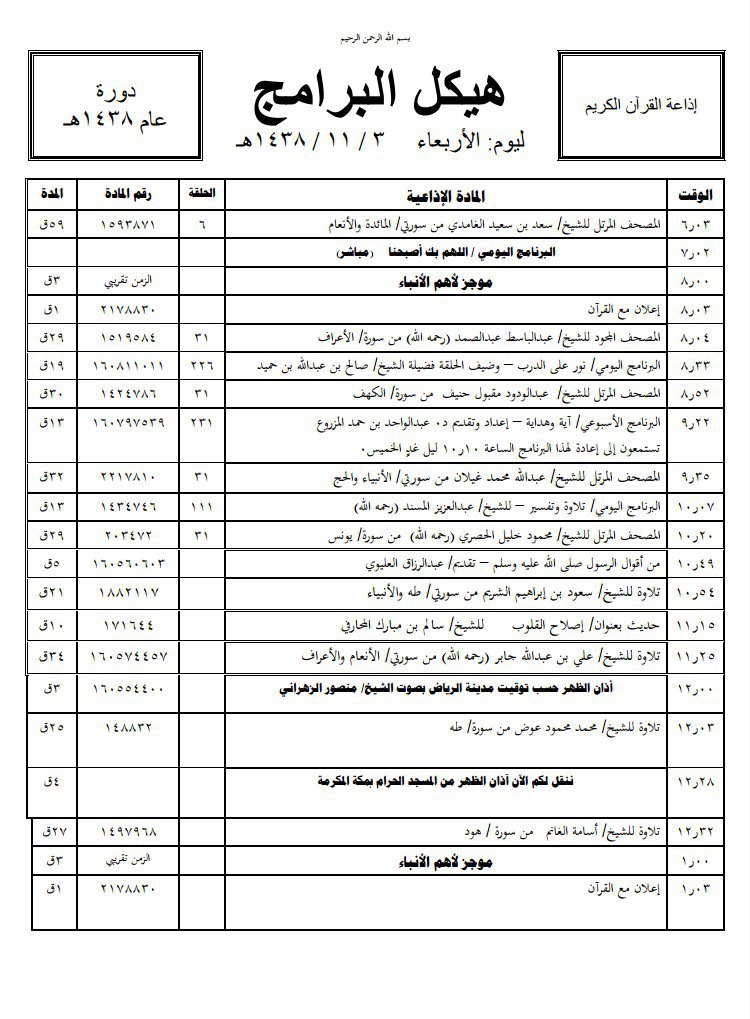 بسم الله الرحمن الرحيم
إذاعة القرآن الكريم
هيكل البرامج
ليوم: الأربعاء ٣ / ١١ / ١٤٣٨هـ
دورة
عام ١٤٣٨هـ
الوقت المادة الإذاعية الحلقة رقم المادة المدة
٦٫٠٣ المصحف المرتل للشيخ/ سعد بن سعيد الغامدي من سورتي/ المائدة والأنعام ٦ ١٥٩٣٨٧١ ٥٩ق
٧٫٠٢ البرنامج اليومي / اللهم بك أصبحنا (مباشر)
٨٫٠٠ موجز لأهم الأنباء الزمن تقريبي ٣ق
٨٫٠٣ إعلان مع القرآن ٢١٧٨٨٣٠ ١ق
٨٫٠٤ المصحف المجود للشيخ/ عبدالباسط عبدالصمد (رحمه الله) من سورة/ الأعراف ٣١ ١٥١٩٥٨٤ ٢٩ق
٨٫٣٣ البرنامج اليومي/ نور على الدرب – وضيف الحلقة فضيلة الشيخ/ صالح بن عبدالله بن حميد ٢٢٦ ١٦٠٨١١٠١١ ١٩ق
٨٫٥٢ المصحف المرتل للشيخ/ عبدالودود مقبول حنيف من سورة/ الكهف ٣١ ١٤٢٤٧٨٦ ٣٠ق
٩٫٢٢ البرنامج الأسبوعي/ آية وهداية – إعداد وتقديم د٠ عبدالواحد بن حمد المزروع ٢٣١ ١٦٠٧٩٧٥٣٩ ١٣ق
تستمعون إلى إعادة لهذا البرنامج الساعة ١٠٫١٠ ليل غدٍ الخميس٠
٩٫٣٥ المصحف المرتل للشيخ/ عبدالله محمد غيلان من سورتي/ الأنبياء والحج ٣١ ٢٢١٧٨١٠ ٣٢ق
١٠٫٠٧ البرنامج اليومي/ تلاوة وتفسير – للشيخ/ عبدالعزيز المسند (رحمه الله) ١١١ ١٤٣٤٧٤٦ ١٣ق
١٠٫٢٠ المصحف المرتل للشيخ/ محمود خليل الحصري (رحمه الله) من سورة/ يونس ٣١ ٢٠٣٤٧٢ ٢٩ق
١٠٫٤٩ من أقوال الرسول صلى الله عليه وسلم – تقديم/ عبدالرزاق العليوي ١٦٠٥٦٠٦٠٣ ٥ق
١٠٫٥٤ تلاوة للشيخ/ سعود بن إبراهيم الشريم من سورتي/ طه والأنبياء ١٨٨٢١١٧ ٢١ق
١١٫١٥ حديث بعنوان/ إصلاح القلوب للشيخ/ سالم بن مبارك المحارفي ١٧١٦٤٤ ١٠ق
١١٫٢٥ تلاوة للشيخ/ علي بن عبدالله جابر (رحمه الله) من سورتي/ الأنعام والأعراف ١٦٠٥٧٤٤٥٧ ٣٤ق
١٢٫٠٠ أذان الظهر حسب توقيت مدينة الرياض بصوت الشيخ/ منصور الزهراني ١٦٠٥٥٤٤٠٠ ٣ق
١٢٫٠٣ تلاوة للشيخ/ محمد محمود عوض من سورة/ طه ١٤٨٨٣٢ ٢٥ق
١٢٫٢٨ ننقل لكم الآن آذان الظهر من المسجد الحرام بمكة المكرمة ٤ق
١٢٫٣٢ تلاوة للشيخ/ أسامة الغانم من سورة / هود ١٤٩٧٩٦٨ ٢٧ق
١٫٠٠ موجز لأهم الأنباء الزمن تقريبي ٣ق
١٫٠٣ إعلان مع القرآن ٢١٧٨٨٣٠ ١ق